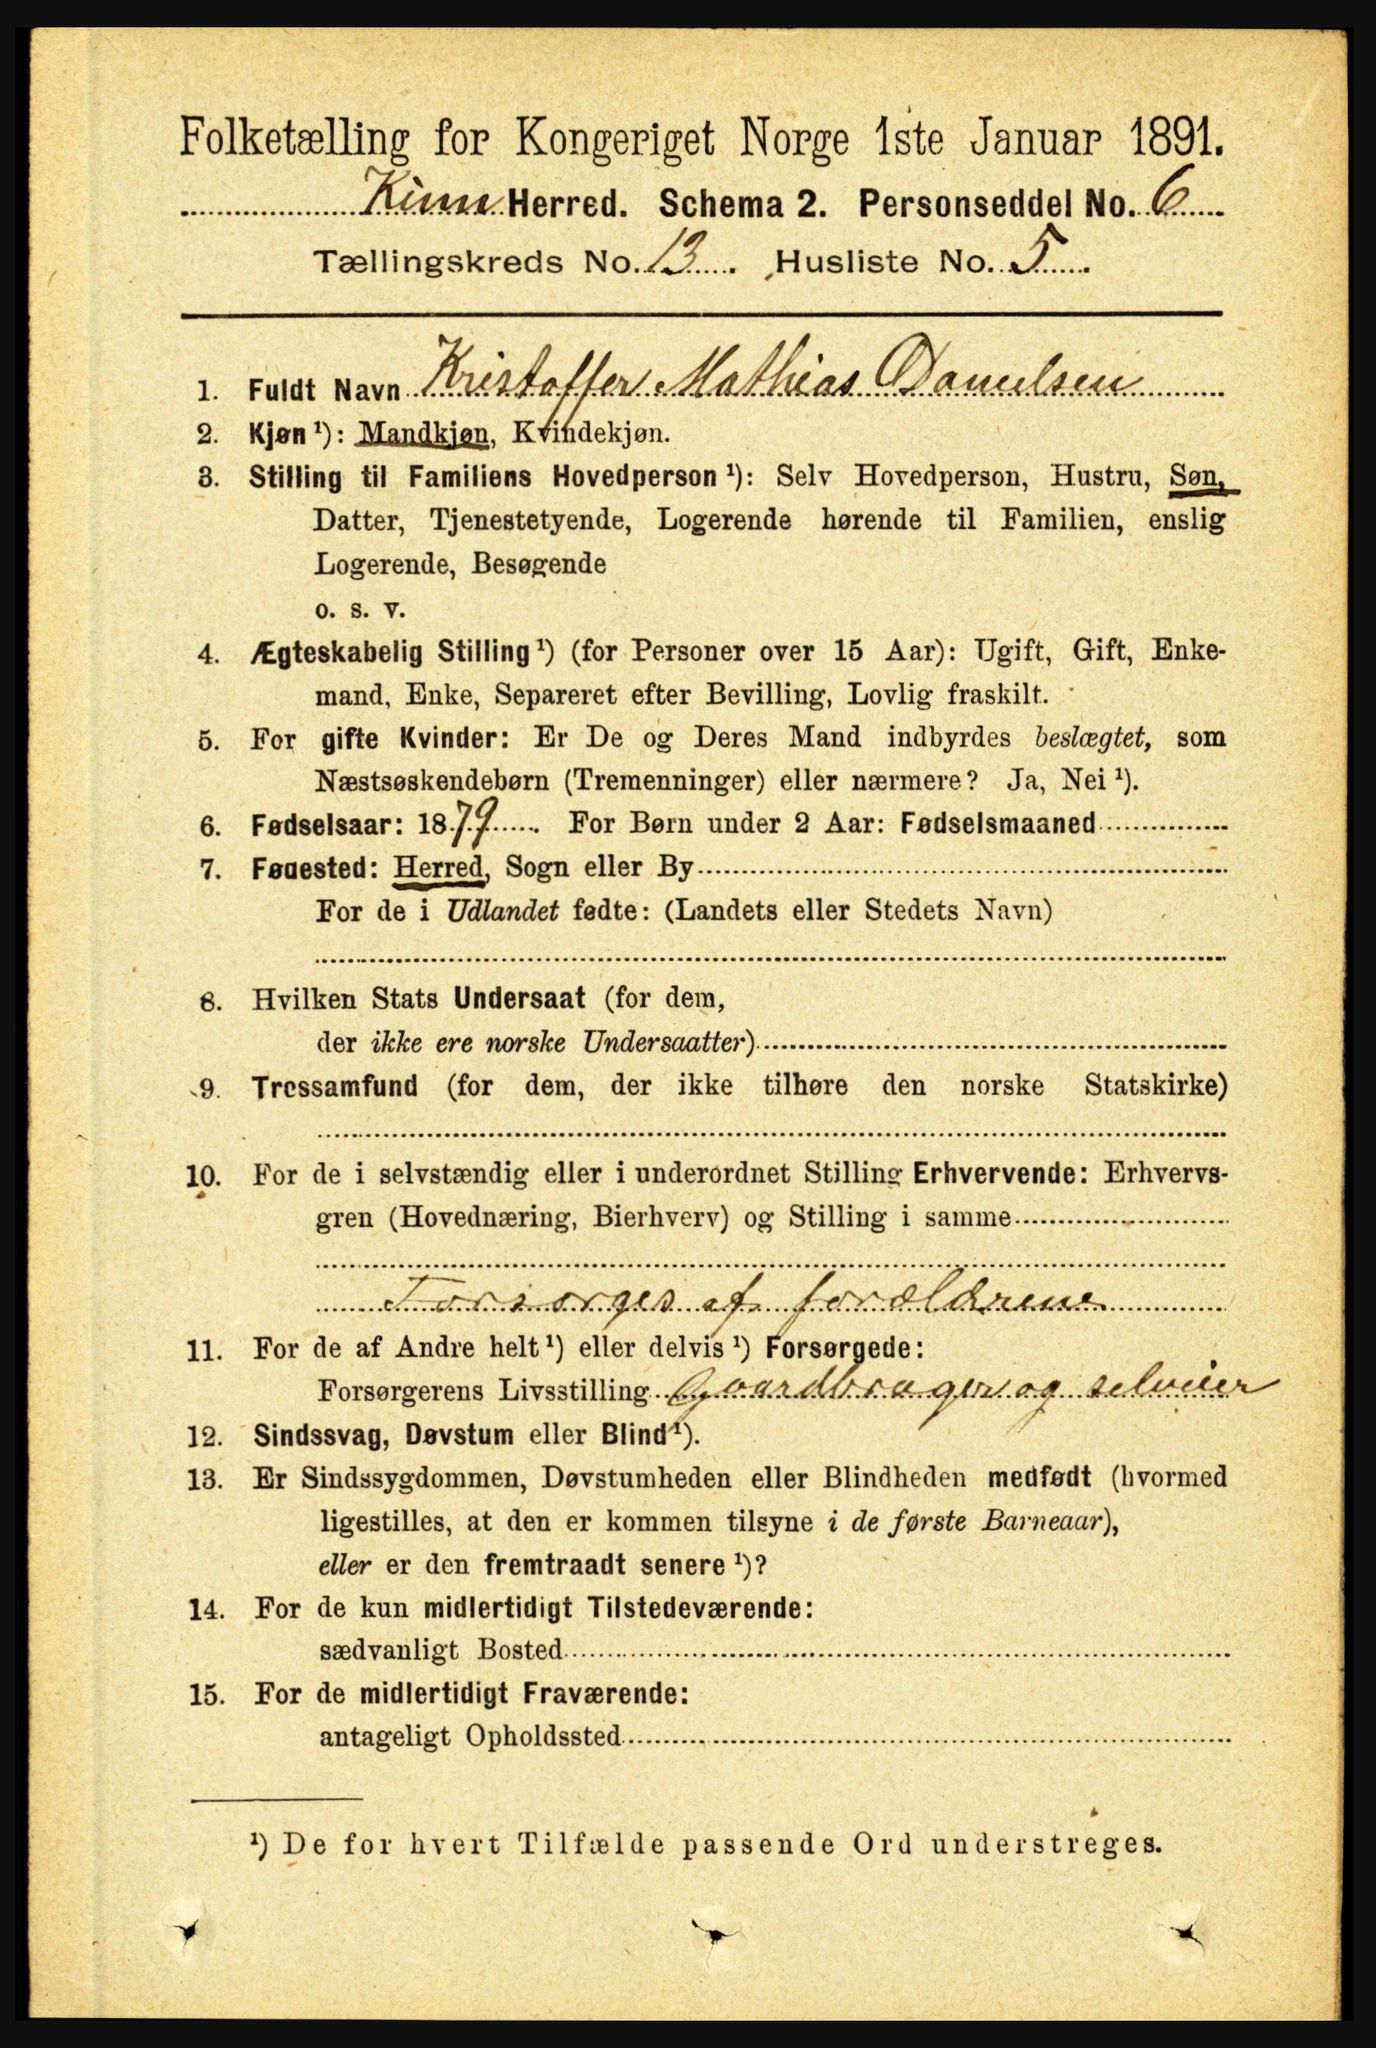 Folketælling for Kongeriget Norge 1ste Januar 1891.
Kinn Herred. Schema 2. Personseddel No. 6
Tællingskreds No. 13. Husliste No. 5
1. Fuldt Navn Kristoffer Mathias Danielsen
2. Kjøn ¹): Mandkjøn, Kvindekjøn.
3. Stilling til Familiens Hovedperson ¹): Selv Hovedperson, Hustru, Søn,
Datter, Tjenestetyende, Logerende hørende til Familien, enslig
Logerende, Besøgende
o. s. v.
4. Ægteskabelig Stilling ¹) (for Personer over 15 Aar): Ugift, Gift, Enke-
mand, Enke, Separeret efter Bevilling, Lovlig fraskilt.
5. For gifte Kvinder: Er De og Deres Mand indbyrdes beslægtet, som
Næstsøskendebørn (Tremenninger) eller nærmere? Ja, Nei ¹).
6. Fødselsaar: 1879. For Børn under 2 Aar: Fødselsmaaned
7. Fødested: Herred, Sogn eller By
For de i Udlandet fødte: (Landets eller Stedets Navn)
8. Hvilken Stats Undersaat (for dem,
der ikke ere norske Undersaatter)
9. Trossamfund (for dem, der ikke tilhøre den norske Statskirke)
10. For de i selvstændig eller i underordnet Stilling Erhvervende: Erhvervs-
gren (Hovednæring, Bierhverv) og Stilling i samme
Forsorges af forældrene
11. For de af Andre helt ¹) eller delvis ¹) Forsørgede:
Forsørgerens Livsstilling Gaardbruger og selveier
12. Sindssvag, Døvstum eller Blind ¹).
13. Er Sindssygdommen, Døvstumheden eller Blindheden medfødt (hvormed
ligestilles, at den er kommen tilsyne i de første Barneaar),
eller er den fremtraadt senere ¹)?
14. For de kun midlertidigt Tilstedeværende:
sædvanligt Bosted
15. For de midlertidigt Fraværende:
antageligt Opholdssted
¹) De for hvert Tilfælde passende Ord understreges.